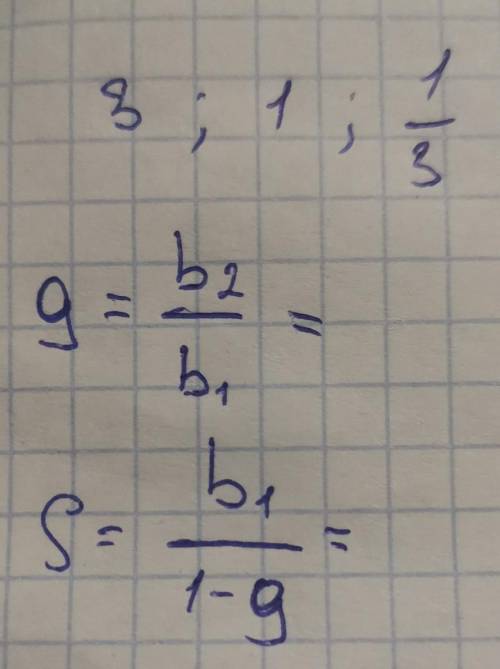 3 ; 1 ; 1/3
q = b₂/b₁ =
S = b₁/(1-q) =